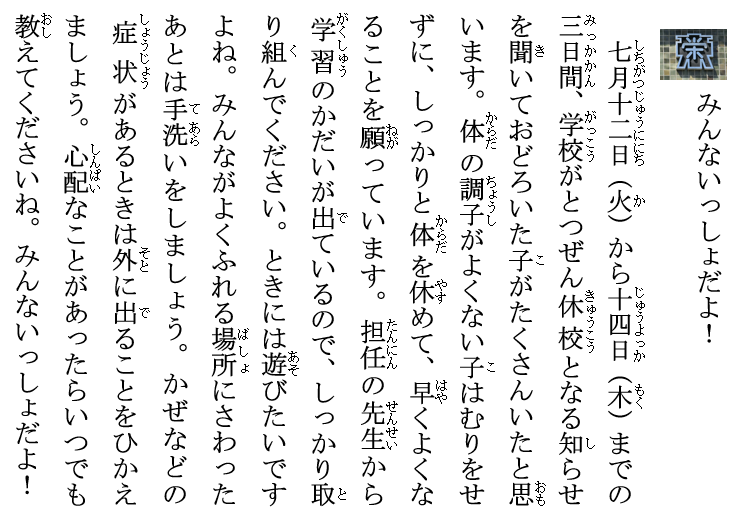 みんないっしょだよ！
七月十二日（火）から十四日（木）までの
三日間、学校がとつぜん休校となる知らせ
を聞いておどろいた子がたくさんいたと思
います。体の調子がよくない子はむりをせ
ずに、しっかりと体を休めて、早くよくな
ることを願っています。担任の先生から
学習のかだいが出ているので、しっかり取
り組んでください。ときには遊びたいです
よね。みんながよくふれる場所にさわった
あとは手洗いをしましょう。かぜなどの
症状があるときは外に出ることをひかえ
ましょう。心配なことがあったらいつでも
教えてくださいね。みんないっしょだよ！